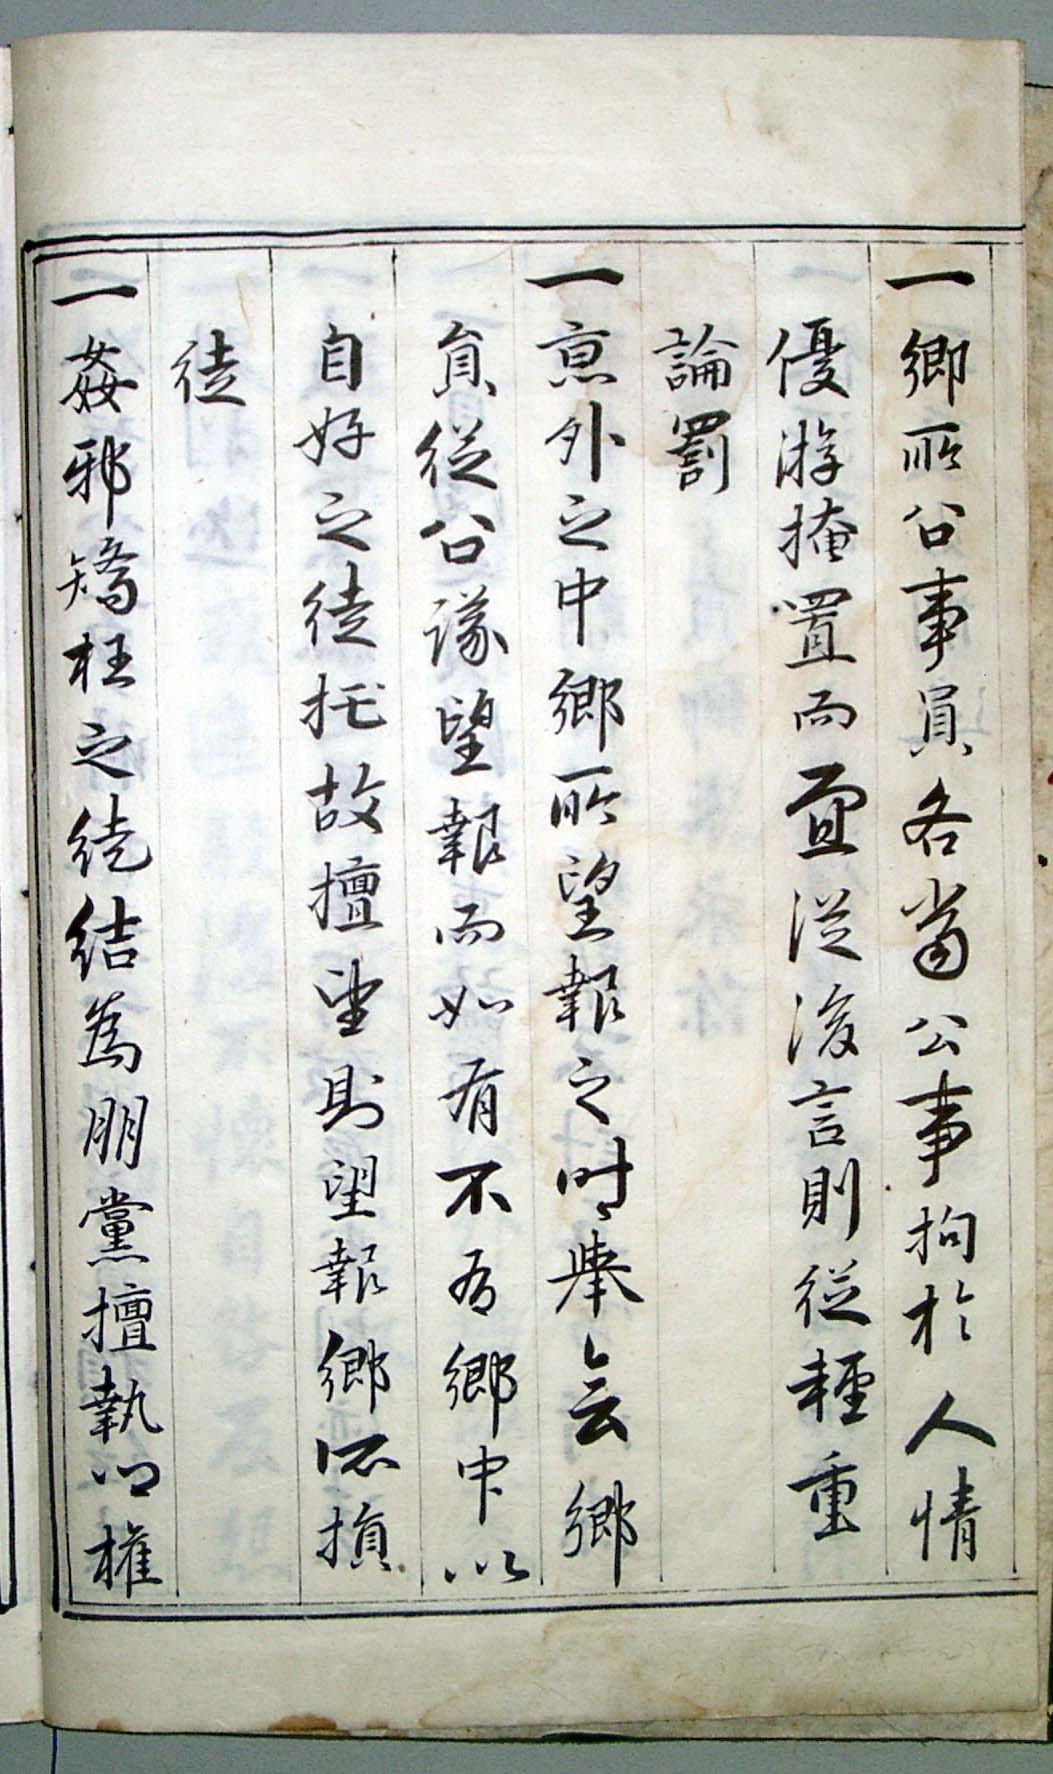 一鄕所公事員各當公事拘於人情
優游掩置而從後言則從輕重
論罰
一亰外之中鄕所望報之时擧会鄕
員從公議望報而如有不鄕中以
自好之徒托故擅望則望報鄕所損
徒
一姦邪矯枉之徒結爲朋黨擅執公權